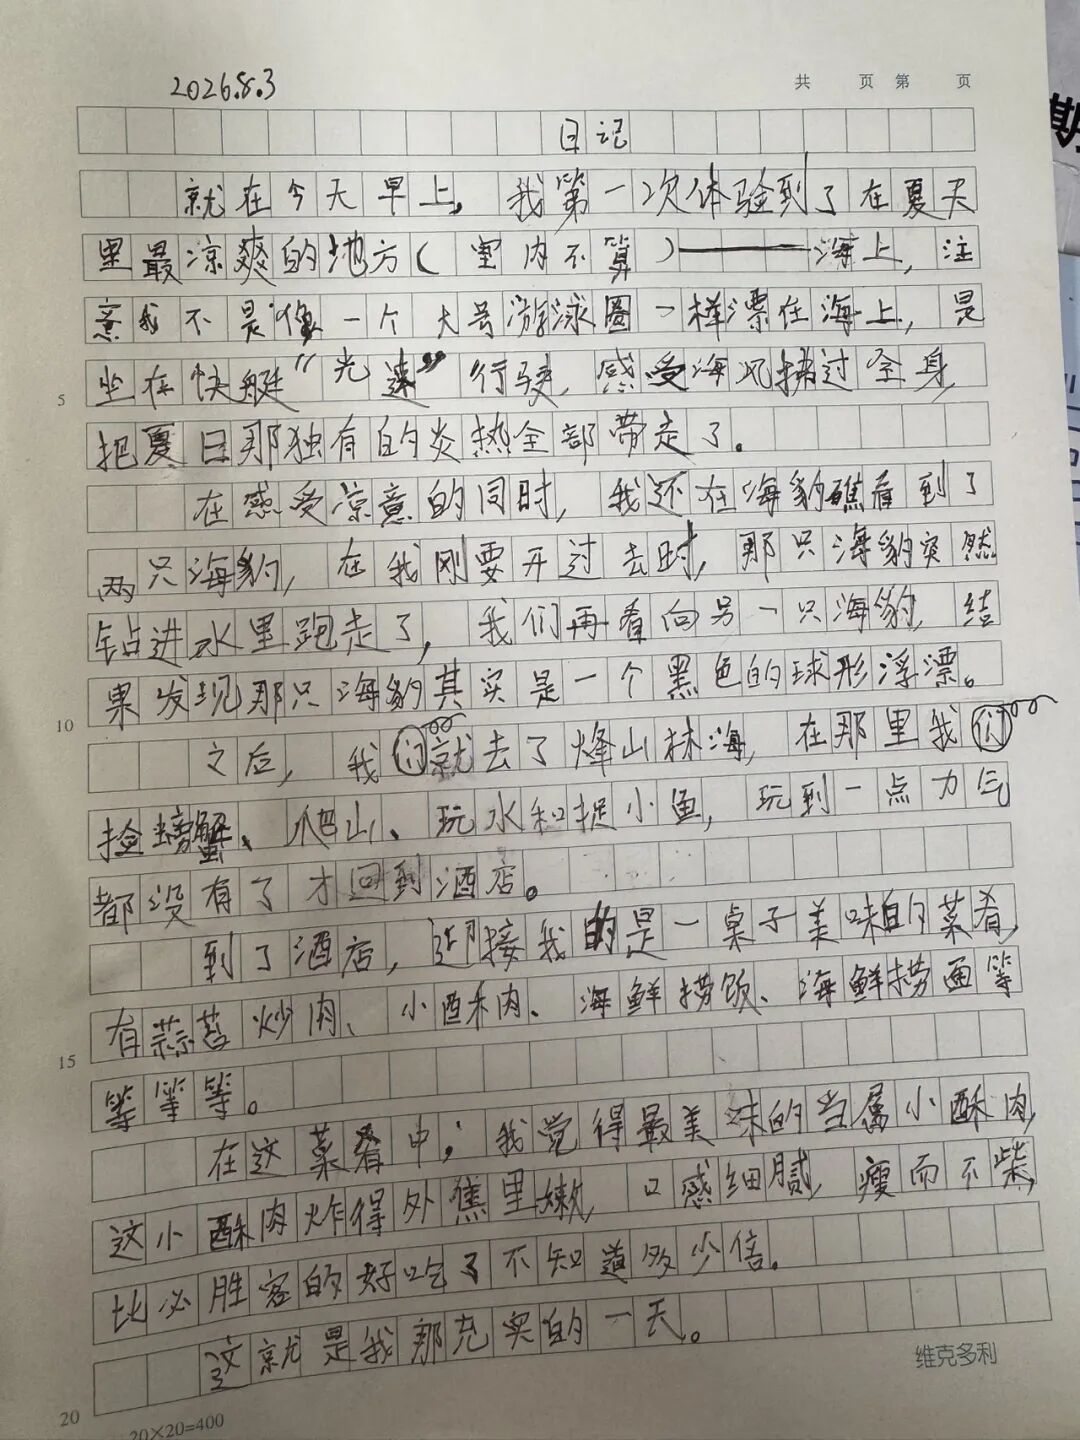 2026.8.3
共 页 第 页
日记
就在今天早上，我第一次体验到了在夏天
里最凉爽的地方（室内不算）——海上，注
意我不是像一个大号游泳圈一样漂在海上，是
坐在快艇“光速”行驶，感受海风拂过全身，
5
把夏日那独有的炎热全部带走了。
在感受凉意的同时，我还在海豹礁看到了
两只海豹，在我刚要开过去时，那只海豹突然
钻进水里跑走了，我们再看向另一只海豹，结
果发现那只海豹其实是一个黑色的球形浮漂。
10
之后，我们就去了烽山林海，在那里我们
捡螃蟹、爬山、玩水和捉小鱼，玩到一点力气
都没有了才回到酒店。
到了酒店，迎接我的是一桌子美味的菜肴，
有蒜苔炒肉、小酥肉、海鲜捞饭、海鲜捞面等
15
等等等。
在这菜肴中，我觉得最美味的当属小酥肉，
这小酥肉炸得外焦里嫩，口感细腻，瘦而不柴，
比必胜客的好吃了不知道多少倍。
这就是我那充实的一天。
维克多利
20
20×20=400
期